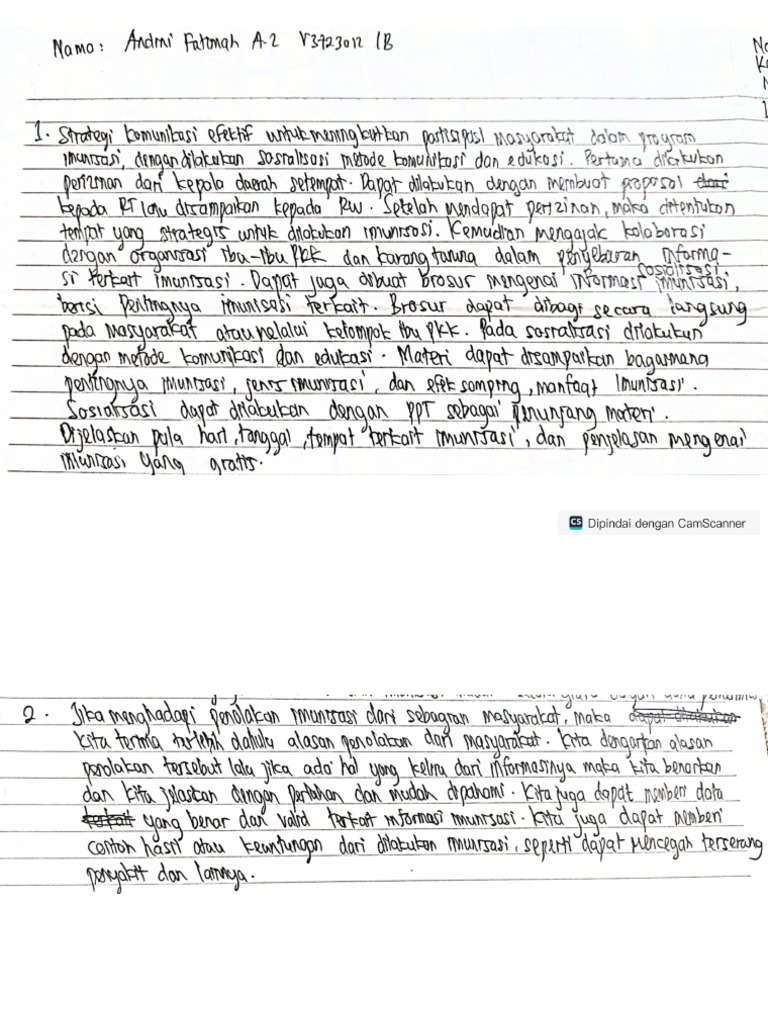 Nama : Andini Fatonah A-2 V3723012 / B
1. Strategi komunikasi efektif untuk meningkatkan partisipasi masyarakat dalam program
imunisasi, dengan dilakukan sosialisasi metode komunikasi dan edukasi. Pertama dilakukan
perizinan dari kepala daerah setempat. Dapat dilakukan dengan membuat proposal dari
kepada RT lalu disampaikan kepada RW. Setelah mendapat perizinan, maka ditentukan
tempat yang strategis untuk dilakukan imunisasi. Kemudian mengajak kolaborasi
dengan organisasi ibu-ibu PKK dan karang taruna dalam penyebaran informa-
si terkait imunisasi. Dapat juga dibuat brosur mengenai informasi sosialisasi imunisasi,
berisi pentingnya imunisasi terkait. Brosur dapat dibagi secara langsung
pada masyarakat atau melalui kelompok ibu PKK. Pada sosialisasi dilakukan
dengan metode komunikasi dan edukasi. Materi dapat disampaikan bagaimana
pentingnya imunisasi, jenis imunisasi, dan efek samping, manfaat imunisasi.
Sosialisasi dapat dilakukan dengan PPT sebagai penunjang materi.
Dijelaskan pula hari, tanggal, tempat terkait imunisasi, dan penjelasan mengenai
imunisasi yang gratis.
CS Dipindai dengan CamScanner
2. Jika menghadapi penolakan imunisasi dari sebagian masyarakat, maka dapat dilakukan
kita terima terlebih dahulu alasan penolakan dari masyarakat. Kita dengarkan alasan
penolakan tersebut lalu jika ada hal yang keliru dari informasinya maka kita benarkan
dan kita jelaskan dengan perlahan dan mudah dipahami. Kita juga dapat memberi data
terkait yang benar dan valid terkait informasi imunisasi. Kita juga dapat memberi
contoh hasil atau keuntungan dari dilakukan imunisasi, seperti dapat mencegah terserang
penyakit dan lainnya.